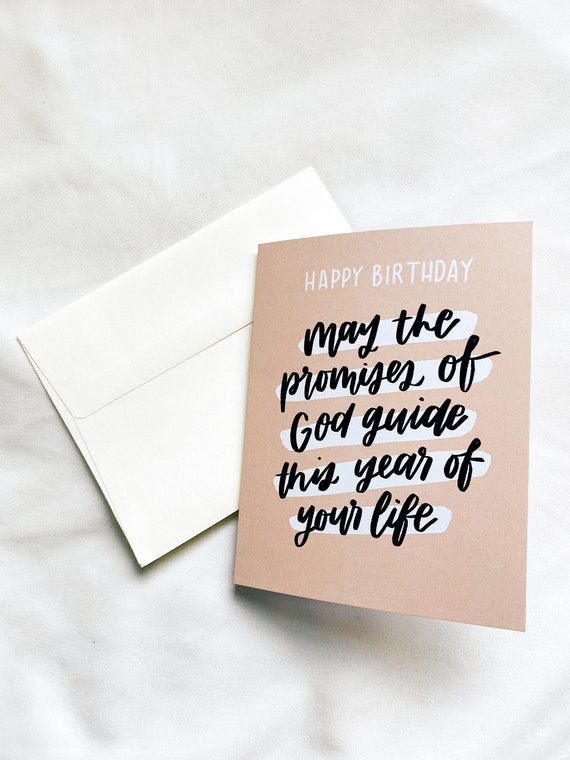 HAPPY BIRTHDAY
may the
promises of
God guide
this year of
your life